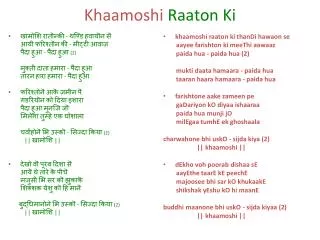 Khaamoshi Raaton Ki
खामोशि रातोंकी - थण्डि हवायोंन से
आयी फरिश्तोंन की - मीट्टी आवाज़
पैदा हुआ - पैदा हुआ (2)
मुक्ती दाता हमारा - पैदा हुआ
तारन हारा हमारा - पैदा हुआ
फरिश्तोंने आके ज़मीन पे
गडरियोंन को दिया इशारा
पैदा हुआ मुनजि जो
मिलेगा तुम्हे एक घोशाला
चर्वाहोने भि उसको - सिज्दा किया (2)
|| खामोशि ||
देखो वी पूरब दिशा से
आये थे तारे के पीचे
मजूसी भि सर को झुकाके
शिक्षक येशु को हि माने
बुद्धिमानोने भि उसको - सिज्दा किया (2)
|| खामोशि ||
khaamoshi raaton ki thanDi hawaon se
aayee farishton ki meeThi aawaaz
paida hua - paida hua (2)
mukti daata hamaara - paida hua
taaran haara hamaara - paida hua
farishtone aake zameen pe
gaDariyon kO diyaa ishaaraa
paida hua munji jO
milEgaa tumhE ek ghoshaala
charwahone bhi uskO - sijda kiya (2)
|| khaamoshi ||
dEkho voh poorab dishaa sE
aayEthe taarE kE peechE
majoosee bhi sar kO khukaakE
shikshak yEshu kO hi maanE
buddhi maanone bhi uskO - sijda kiyaa (2)
|| khaamoshi ||